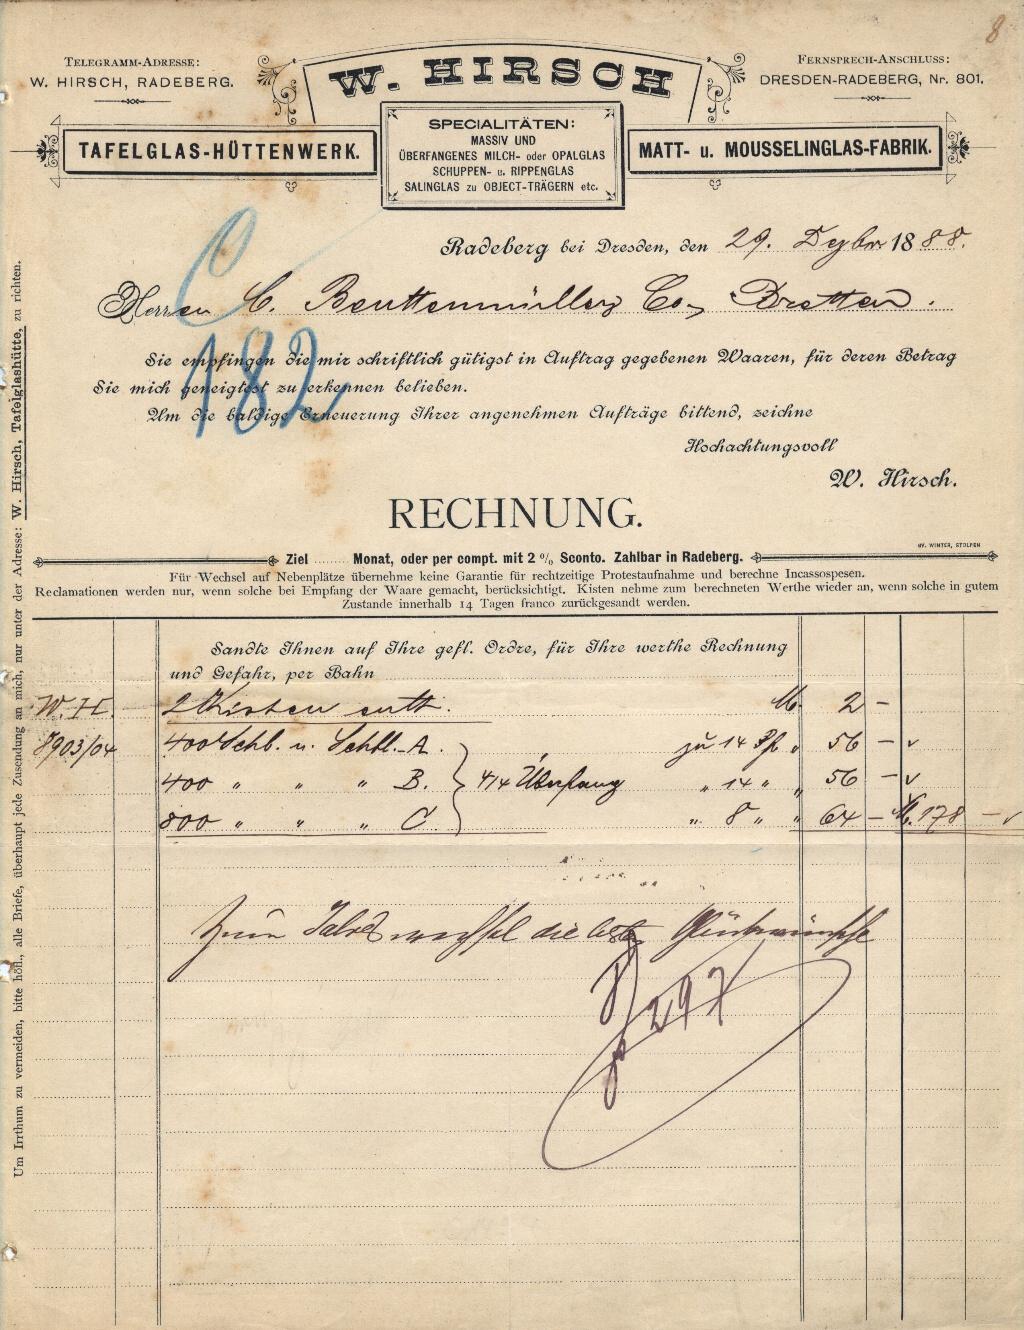 8
TELEGRAMM-ADRESSE:
W. HIRSCH, RADEBERG.
W. HIRSCH
FERNSPRECH-ANSCHLUSS:
DRESDEN-RADEBERG, Nr. 801.
TAFELGLAS-HÜTTENWERK.
SPECIALITÄTEN:
MASSIV UND
ÜBERFANGENES MILCH- oder OPALGLAS
SCHUPPEN- u. RIPPENGLAS
SALINGLAS zu OBJECT-TRÄGERN etc.
MATT- u. MOUSSELINGLAS-FABRIK.
Radeberg bei Dresden, den 29. Dzbr 1888.
Herren C. Beuttenmüller & Co, Bretten.
C
182
Sie empfingen die mir schriftlich gütigst in Auftrag gegebenen Waaren, für deren Betrag
Sie mich geneigtest zu erkennen belieben.
Um die baldige Erneuerung Ihrer angenehmen Aufträge bittend, zeichne
Hochachtungsvoll
W. Hirsch.
RECHNUNG.
HV. WINTER, STOLPEN
Ziel ........ Monat, oder per compt. mit 2 % Sconto. Zahlbar in Radeberg.
Für Wechsel auf Nebenplätze übernehme keine Garantie für rechtzeitige Protestaufnahme und berechne Incassospesen.
Reclamationen werden nur, wenn solche bei Empfang der Waare gemacht, berücksichtigt. Kisten nehme zum berechneten Werthe wieder an, wenn solche in gutem
Zustande innerhalb 14 Tagen franco zurückgesandt werden.
Sandte Ihnen auf Ihre gefl. Ordre, für Ihre werthe Rechnung
und Gefahr, per Bahn
W. H. 2 Kisten enth. M. 2 –
8903/04 400 Schb. u. Schbl. A. zu 14 Pf. " 56 –
400 " " " B. 4/4 Überfang " 14 " " 56 –
800 " " " C. " 8 " " 64 – M. 178 –
Zum Jahreswechsel die besten Glückwünsche
297
Um Irrthum zu vermeiden, bitte höfl., alle Briefe, überhaupt jede Zusendung an mich, nur unter der Adresse: W. Hirsch, Tafelglashütte, zu richten.